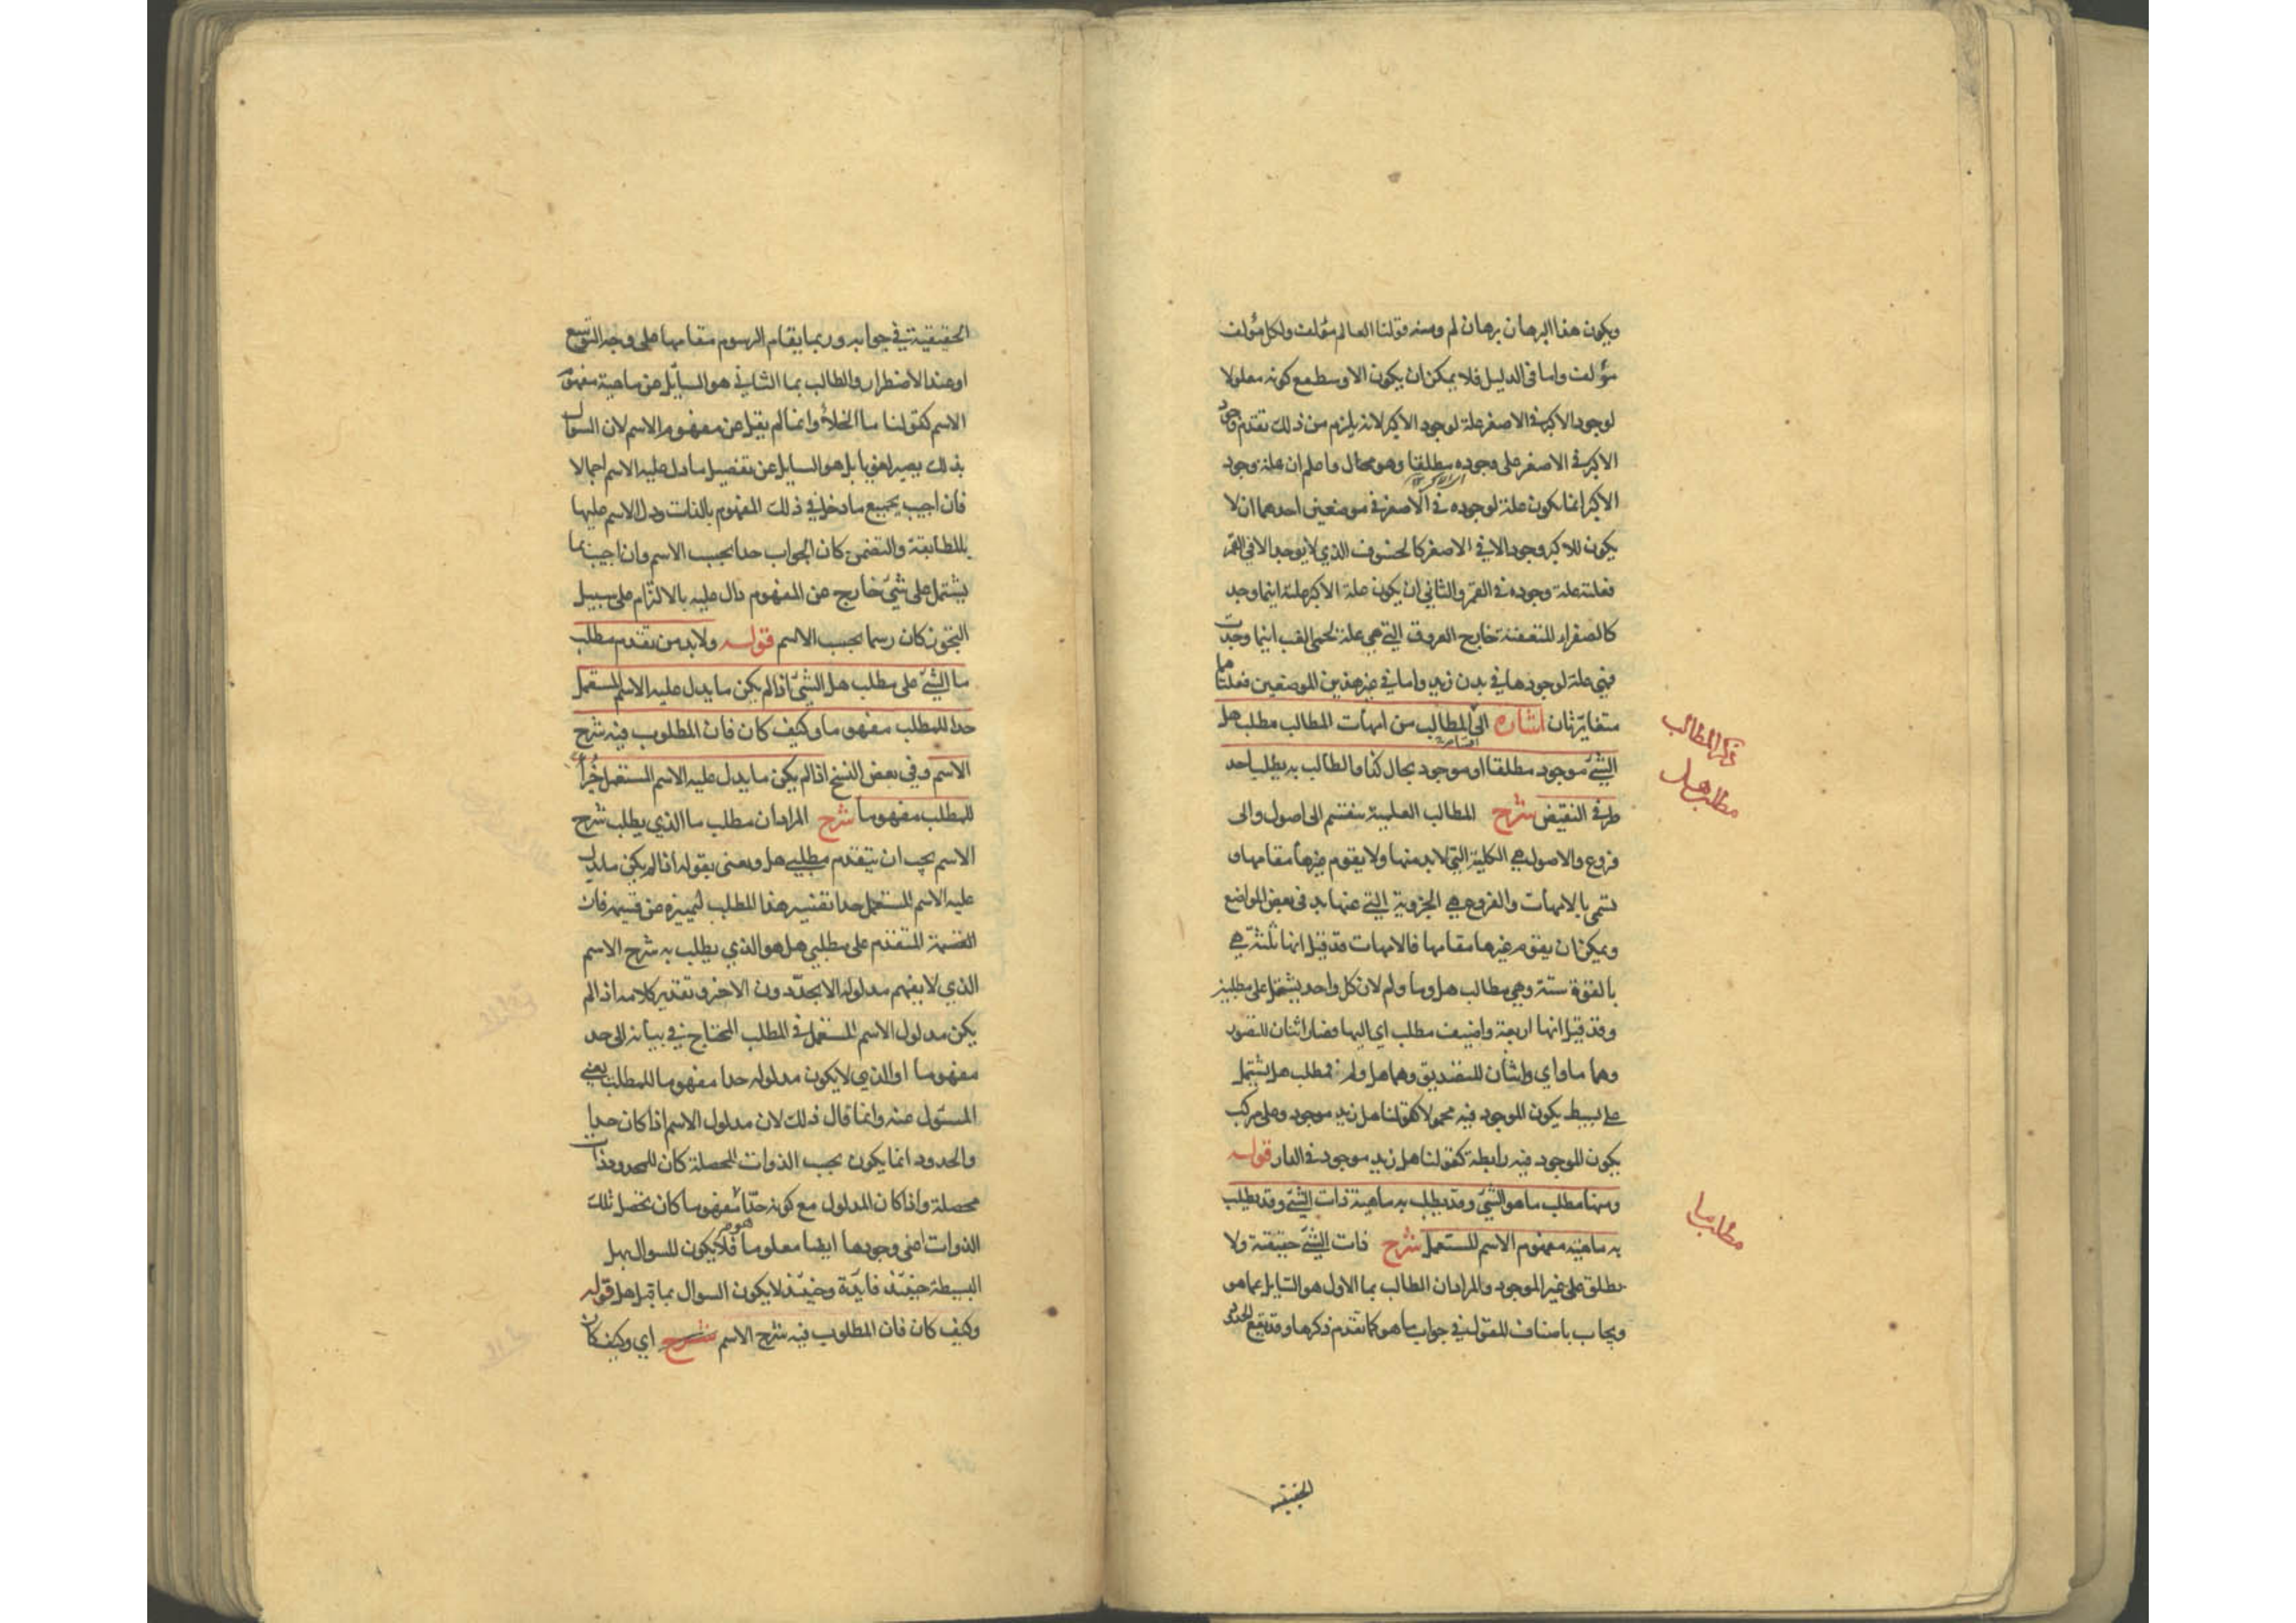 ويكون هذا البرهان برهان لم ومنه قولنا العالم مؤلف ولكل مؤلف
مؤلف واما في الدليل فلا يمكن ان يكون الاوسط مع كونه معلولا
لوجود الاكبر في الاصغر علة لوجود الاكبر لانه يلزم من ذلك تقدم وجود
الاكبر في الاصغر على وجوده مطلقا وهو محال واعلم ان علة وجود
الاكبر انما يكون علة لوجوده في الاصغر في موضعين احدهما ان لا
يكون للاكبر وجود الا في الاصغر كالخسوف الذي لا يوجد الا في القمر
فعلته علة وجوده في القمر والثاني ان يكون علة الاكبر علة اينما وجد
كالصفراء المتعفنة خارج العروق التي هي علة لحمى الغب اينما وجدت
فهي علة لوجودها في بدن زيد واما في غير هذين الموضعين فعلتاهما
متغايرتان اشارة الى المطالب من امهات المطالب مطلب هل
الشئ موجود مطلقا او موجود بحال كذا والطالب به يطلب احد
طرفي النقيض شرح المطالب العلمية ينقسم الى اصول والى
فروع والاصول هي الكلية التي لا بد منها ولا يقوم غيرها مقامها و
تسمى بالامهات والفروع هي الجزوية التي عنها بد في بعض المواضع
ويمكن ان يقوم غيرها مقامها فالامهات قد قيل انها ثلثة هي
بالقوة ستة وهي مطالب هل وما ولم لان كل واحد يشتمل على مطلبين
وقد قيل انها اربعة واضيف مطلب اي اليها فصار اثنان للتصور
وهما ما واي واثنان للتصديق وهما هل ولم فمطلب هل يشتمل
على بسيط يكون الموجود فيه محمولا كقولنا هل زيد موجود وعلى مركب
يكون الموجود فيه رابطة كقولنا هل زيد موجود في الدار قوله
ومنها مطلب ما هو الشئ وقد يطلب به ماهية ذات الشئ وقد يطلب
به ماهية مفهوم الاسم المستعمل شرح ذات الشئ حقيقته ولا
يطلق على غير الموجود والمراد ان الطالب بما الاول هو السايل عما هو
ويجاب باصناف المقول في جواب ما هو كما تقدم ذكرها وقد يقع الحدود
الحقيقية
ذكر المطالب
مطلب هل
مطلب ما
الحقيقية في جوابه وربما يقام الرسوم مقامها على وجه التوسع
او عند الاضطرار والطالب بما الثاني هو السايل عن ماهية مفهوم
الاسم كقولنا ما الخلأ وانما لم يقل عن مفهوم الاسم لان السوال
بذلك يصير لغويا بل هو السايل عن تفصيل ما دل عليه الاسم اجمالا
فان اجيب بجميع ما دخل في ذلك المفهوم بالذات ودل الاسم عليها
بالمطابقة والتضمن كان الجواب حدا بحسب الاسم وان اجيب بما
يشتمل على شئ خارج عن المفهوم دال عليه بالالتزام على سبيل
التجوز كان رسما بحسب الاسم قوله ولا بد من تقدم مطلب
ما الشئ على مطلب هل الشئ اذا لم يكن ما يدل عليه الاسم المستعمل
حدا للمطلب مفهوما وكيف كان فان المطلوب فيه شرح
الاسم وفي بعض النسخ اذا لم يكن ما يدل عليه الاسم المستعمل جزأ
للمطلب مفهوما شرح المراد ان مطلب ما الذي يطلب شرح
الاسم يجب ان يتقدم مطلبي هل ويعني بقوله اذا لم يكن ما يدل
عليه الاسم المستعمل حدا تقييد هذا المطلب لتميزه عن قسيمه فان
القسمة المتقدم على مطلبي هل هو الذي يطلب به شرح الاسم
الذي لا يفهم مدلوله الا بحد دون الاخر وتقدير كلامه اذا لم
يكن مدلول الاسم المستعمل في المطلب المحتاج في بيانه الى حد
مفهوما او الذي لا يكون مدلوله حدا مفهوما للمطلب يعني
المسئول عنه وانما قال ذلك لان مدلول الاسم اذا كان حدا
والحدود انما يكون بحسب الذوات المحصلة كان للمحدود ذات
محصلة واذا كان المدلول مع كونه حدا مفهوما كان تحصل تلك
الذوات اعني وجودها ايضا معلوما فلا يكون للسوال بهل
البسيطة حينئذ فايدة وحينئذ لا يكون السوال بما قبل هل قوله
وكيف كان فان المطلوب فيه شرح الاسم شرح اي وكيف كان